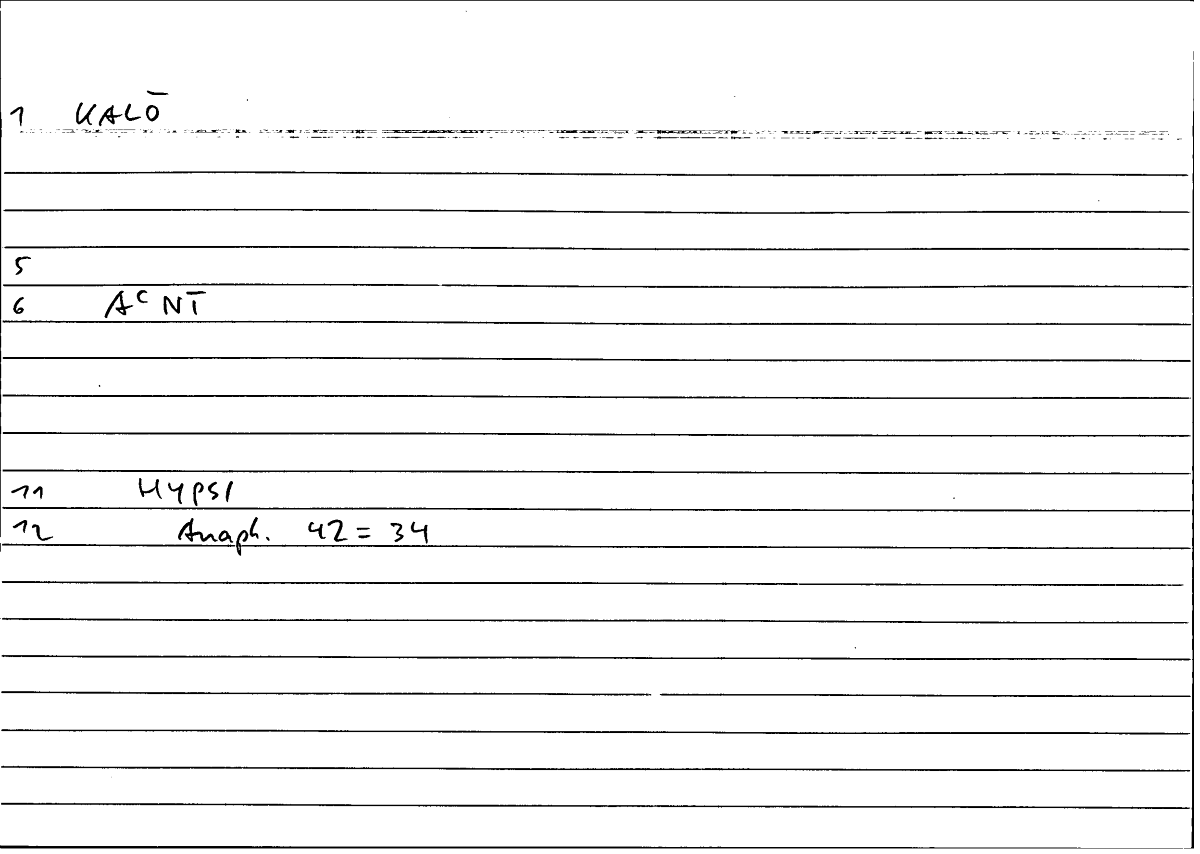 1 KALŌ
5
6 Aᶜ NT̄
11 HYPSI
12 Anaph. 42 = 34